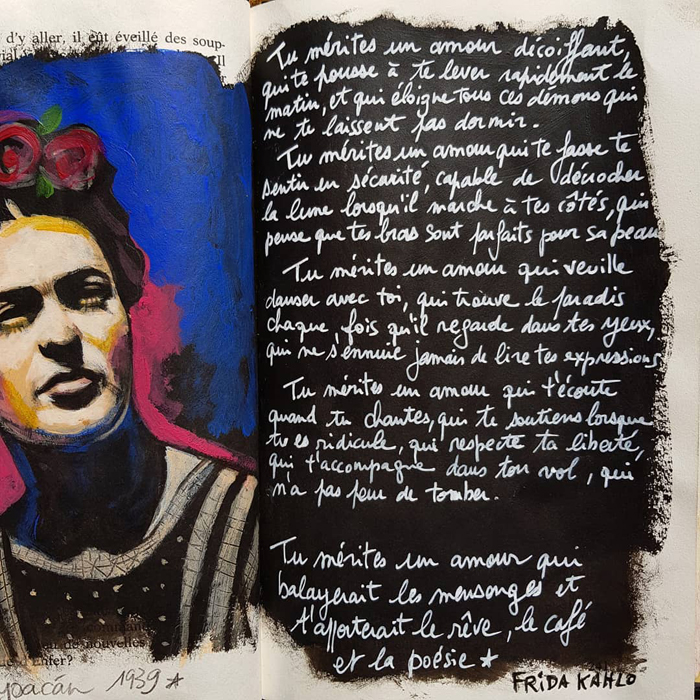 d'y aller, il eût éveillé des soup-
Tu mérites un amour décoiffant,
qui te pousse à te lever rapidement le
matin, et qui éloigne tous ces démons qui
ne te laissent pas dormir.
Tu mérites un amour qui te fasse te
sentir en sécurité, capable de décrocher
la lune lorsqu'il marche à tes côtés, qui
pense que tes bras sont parfaits pour sa peau
Tu mérites un amour qui veuille
danser avec toi, qui trouve le paradis
chaque fois qu'il regarde dans tes yeux,
qui ne s'ennuie jamais de lire tes expressions
Tu mérites un amour qui t'écoute
quand tu chantes, qui te soutiens lorsque
tu es ridicule, qui respecte ta liberté,
qui t'accompagne dans ton vol, qui
n'a pas peur de tomber.
Tu mérites un amour qui
balayerait les mensonges et
t'apporterait le rêve, le café
et la poésie
de nouvelles
Enfer?
1939
FRiDA KAHLO